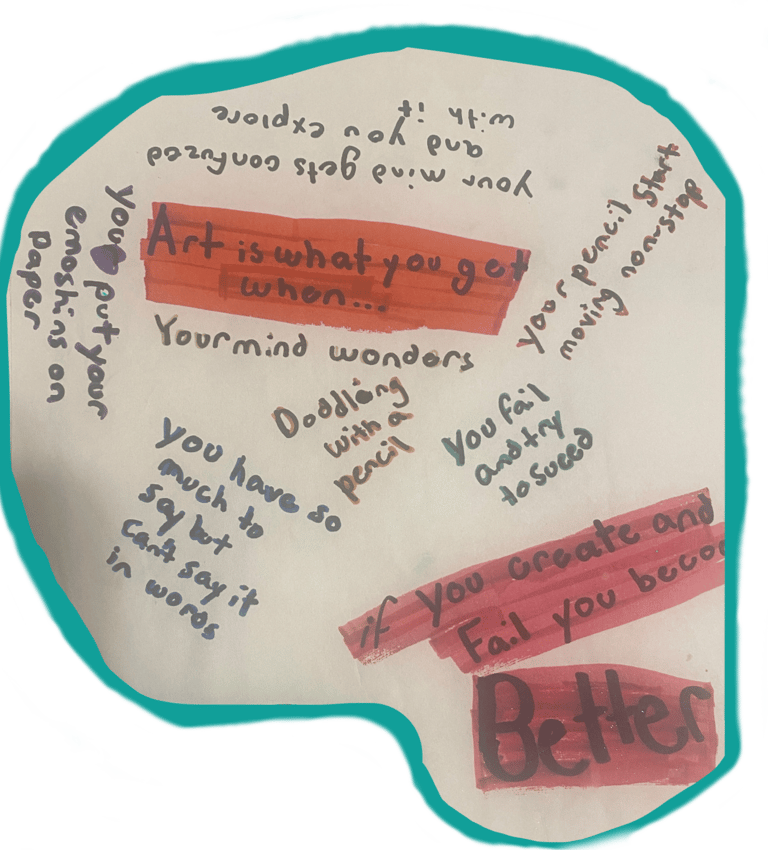 your mind gets confuzed
and you explore
with it
Art is what you get
when...
Your mind wonders
your pencil start
moving non-stop
you put your
emoshins on
paper
Doddling
with a
pencil
you fail
and try
to suceed
you have so
much to
say but
can't say it
in words
if you create and
Fail you
Better